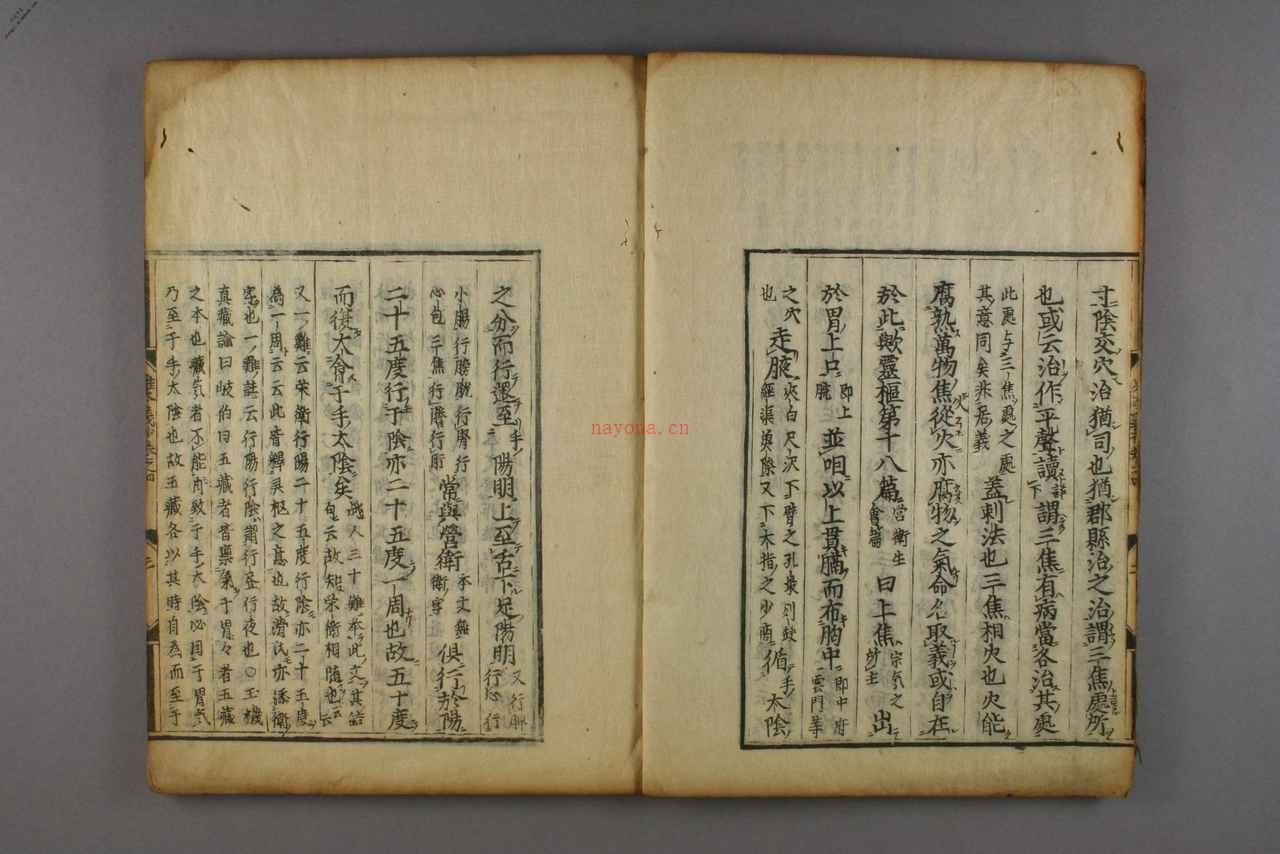 寸陰交穴治猶司也猶郡縣治之治謂三焦處所
也或云治作平聲讀謂三焦有病當各治其處
此處与三焦處之處
其意同矣非居義
蓋刺法也三焦相火也火能
腐熟萬物焦從火亦腐物之氣命名取義或自在
於此歟靈樞第十八篇
營衛生
會篇
曰上焦
宗氣之
所主
出
於胃上口
即上
脘
並咽以上貫膈而布胸中
即中府
雲門等
之穴
也
走腋
夾白尺沢下臂之孔最列缺
經渠魚際又下大指之少商
循手太陰
之分而行還至手陽明上至舌下足陽明
又行脾
行心行
小腸行膀胱行腎行
心包三焦行膽行肝
常與營衛
本文無
衛字
俱行於陽
二十五度行于陰亦二十五度一周也故五十度
而復大會于手太陰矣
滑人三十難奉此文其詰
曰云故知栄衛相随也云云
又一難云栄衛行陽二十五度行陰亦二十五度
為一周云云此皆釋灵枢之意也故滑氏亦添衛
字也一難註云行陽行陰謂行昼行夜也○玉機
真藏論曰岐伯曰五藏者皆稟氣于胃々者五藏
之本也藏氣者不能自致于手太陰必因于胃氣
乃至于手太陰也故五藏各以其時自為而至于
nayona.cn